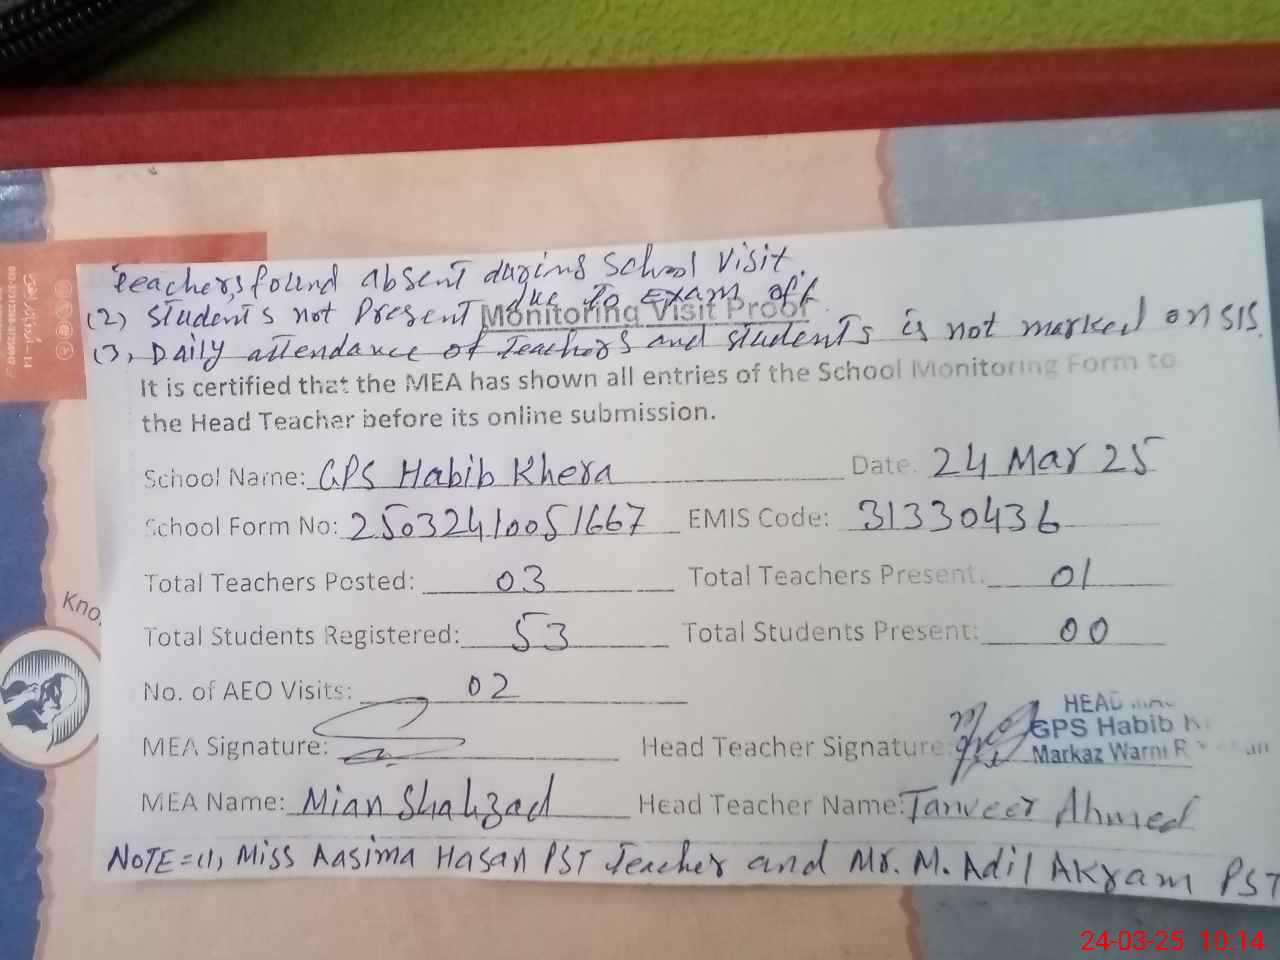 teachers found absent during school visit.
(2) Students not Present due to Exam off.
Monitoring Visit Proof
(3) Daily attendance of teachers and students is not marked on SIS.
It is certified that the MEA has shown all entries of the School Monitoring Form to
the Head Teacher before its online submission.
School Name: GPS Habib Khera Date: 24 Mar 25
School Form No: 25032410051667 EMIS Code: 31330436
Total Teachers Posted: 03 Total Teachers Present: 01
Total Students Registered: 53 Total Students Present: 00
No. of AEO Visits: 02
HEAD
GPS Habib
MEA Signature: Head Teacher Signature:
Markaz Warni R
MEA Name: Mian Shahzad Head Teacher Name: Tanveer Ahmed
NOTE = (1) Miss Aasima Hasan PST Teacher and Mr. M. Adil Akram PST
Kno
24-03-25 10:14